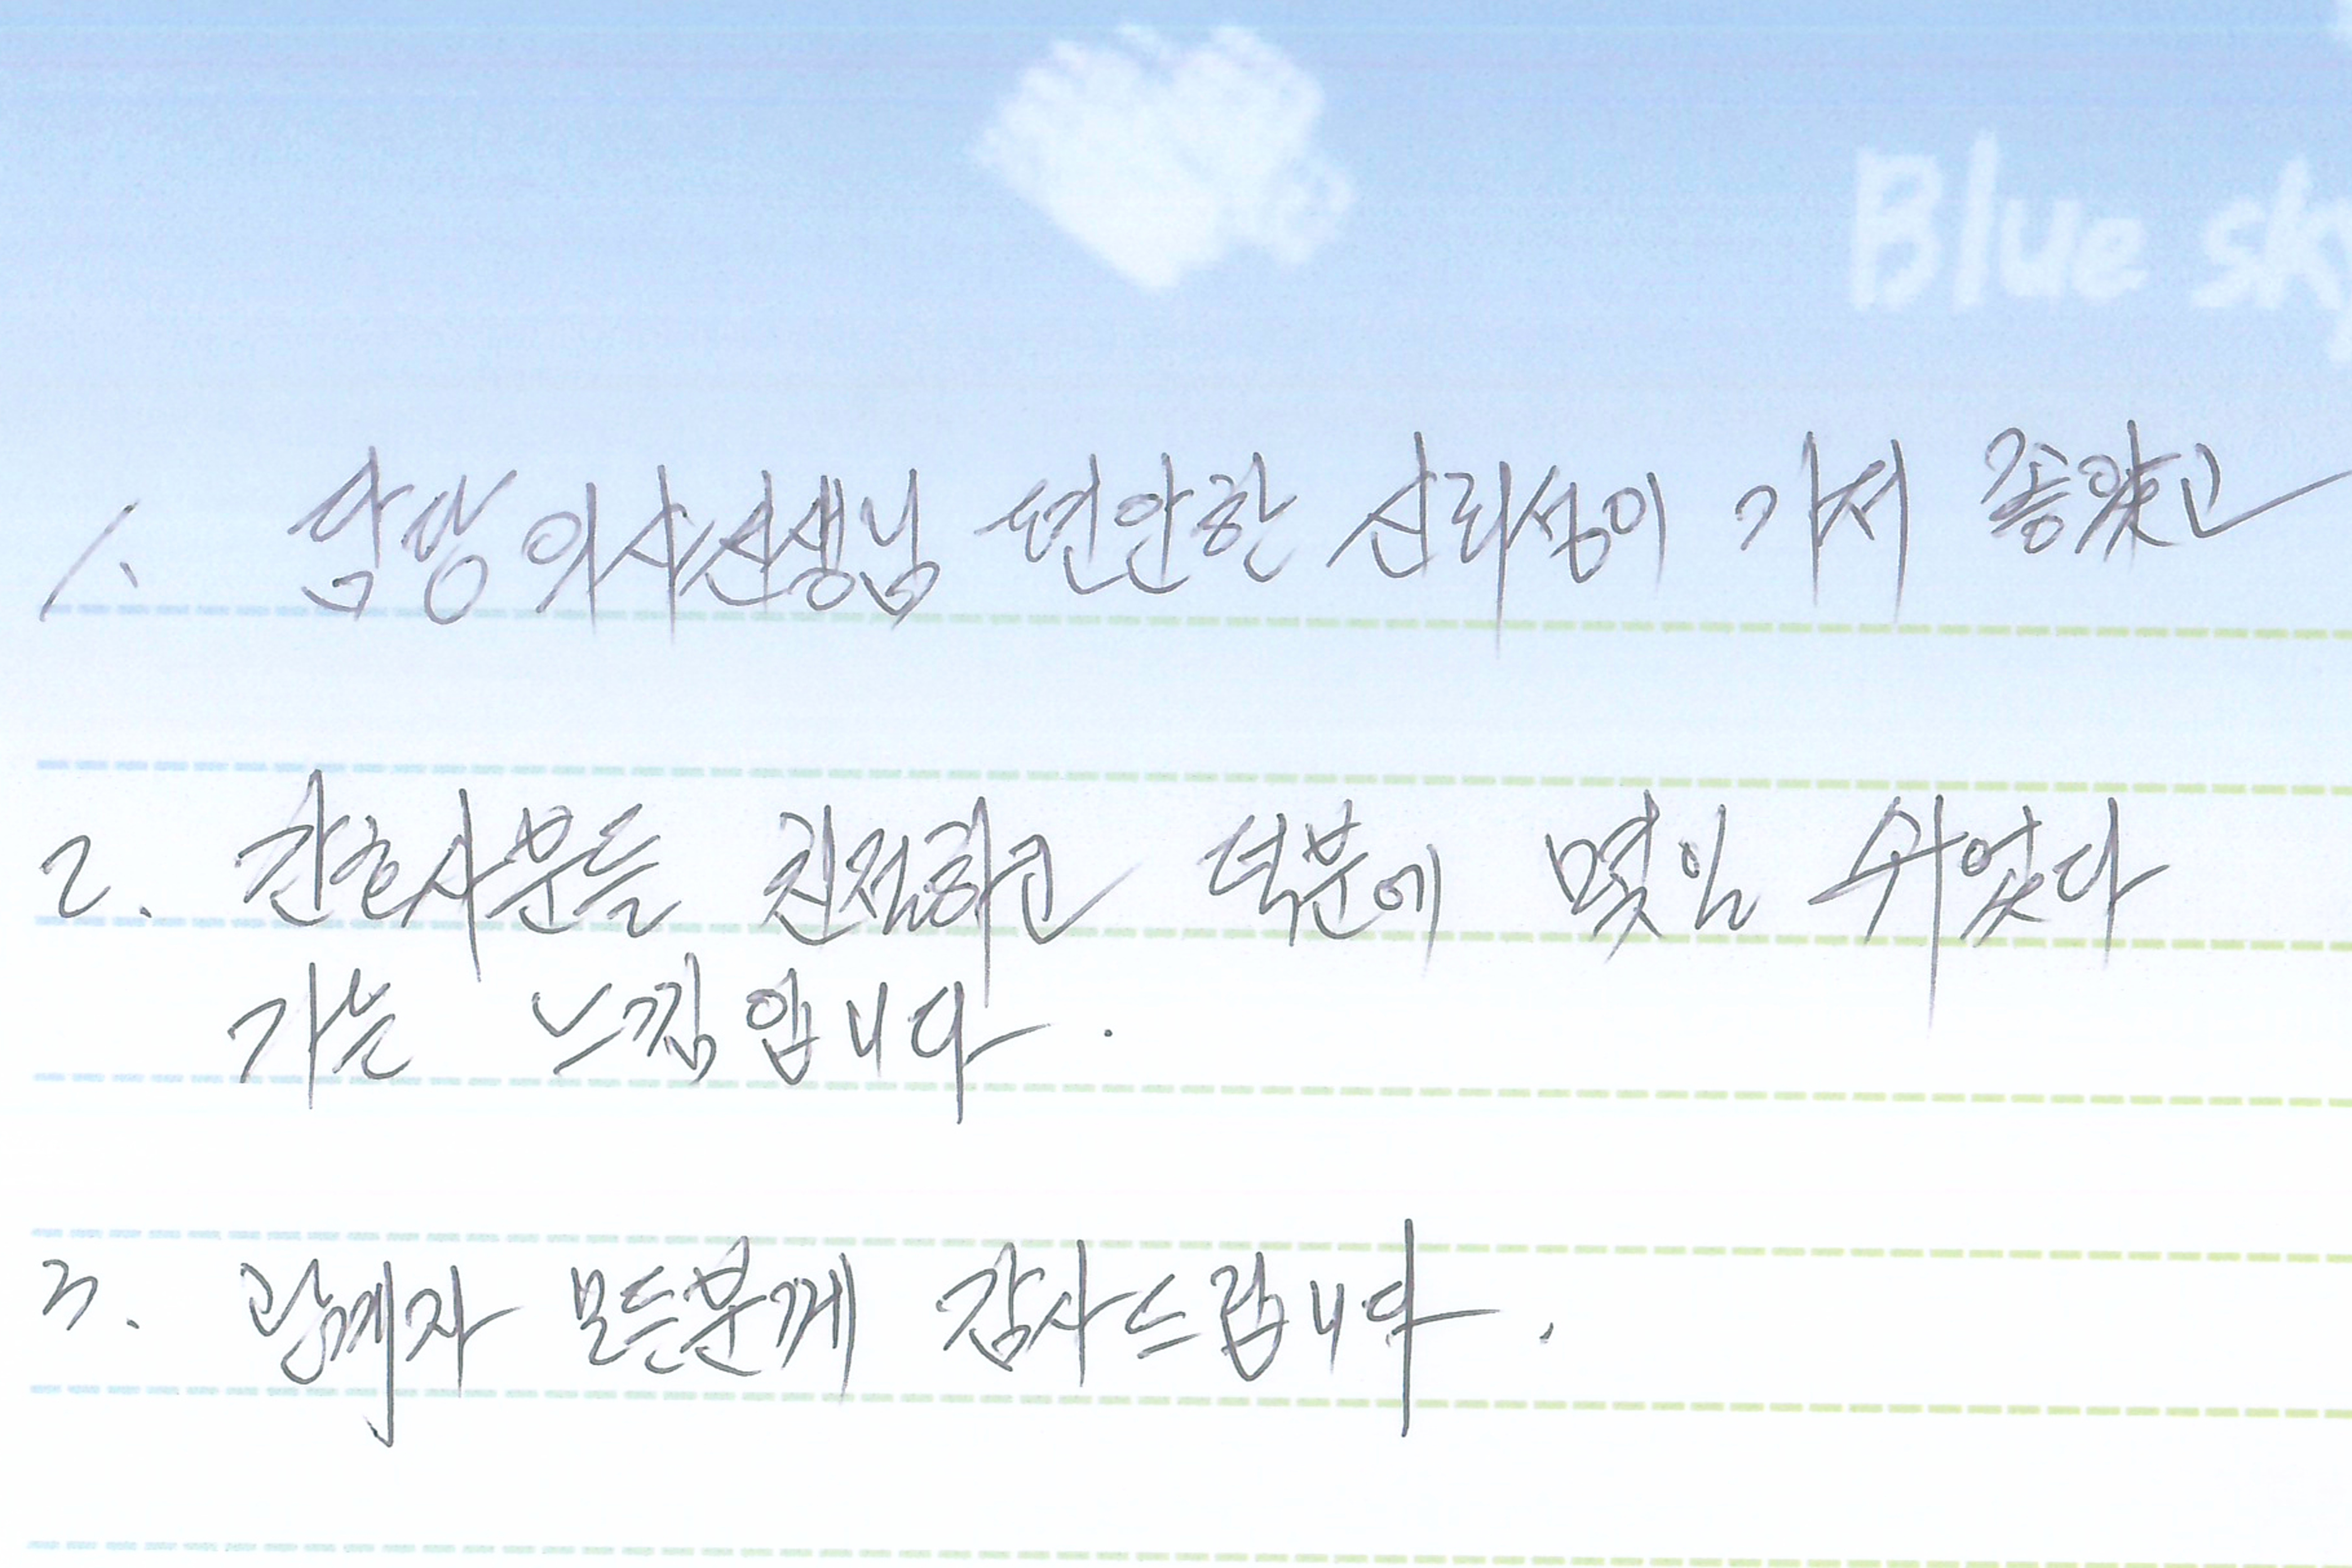 Blue sky
1. 담당 의사선생님 편안한 신뢰성이 가서 좋았고
2. 간호사분들 친절하고 덕분에 몇일 쉬었다
가는 느낌입니다.
3. 관계자 모든분께 감사드립니다.